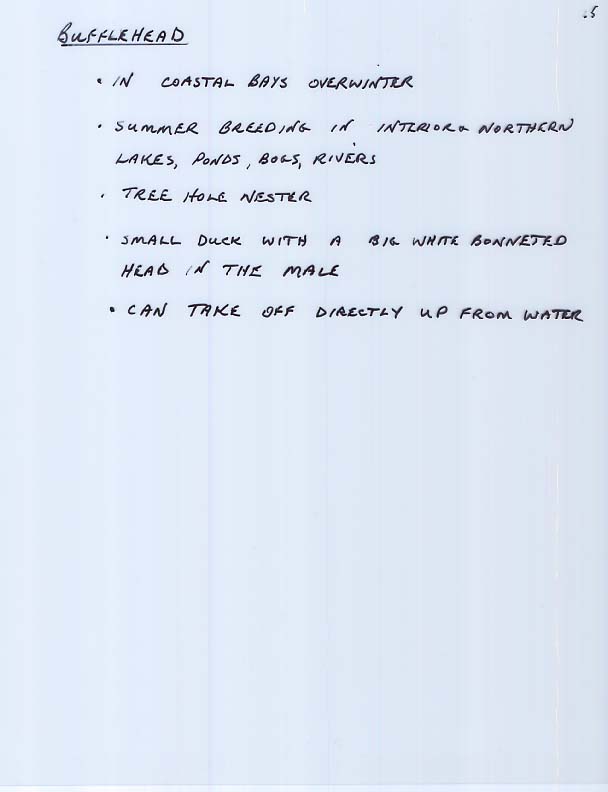 .5
BUFFLEHEAD
• IN COASTAL BAYS OVERWINTER
• SUMMER BREEDING IN INTERIOR & NORTHERN
LAKES, PONDS, BOGS, RIVERS
• TREE HOLE NESTER
• SMALL DUCK WITH A BIG WHITE BONNETED
HEAD IN THE MALE
• CAN TAKE OFF DIRECTLY UP FROM WATER